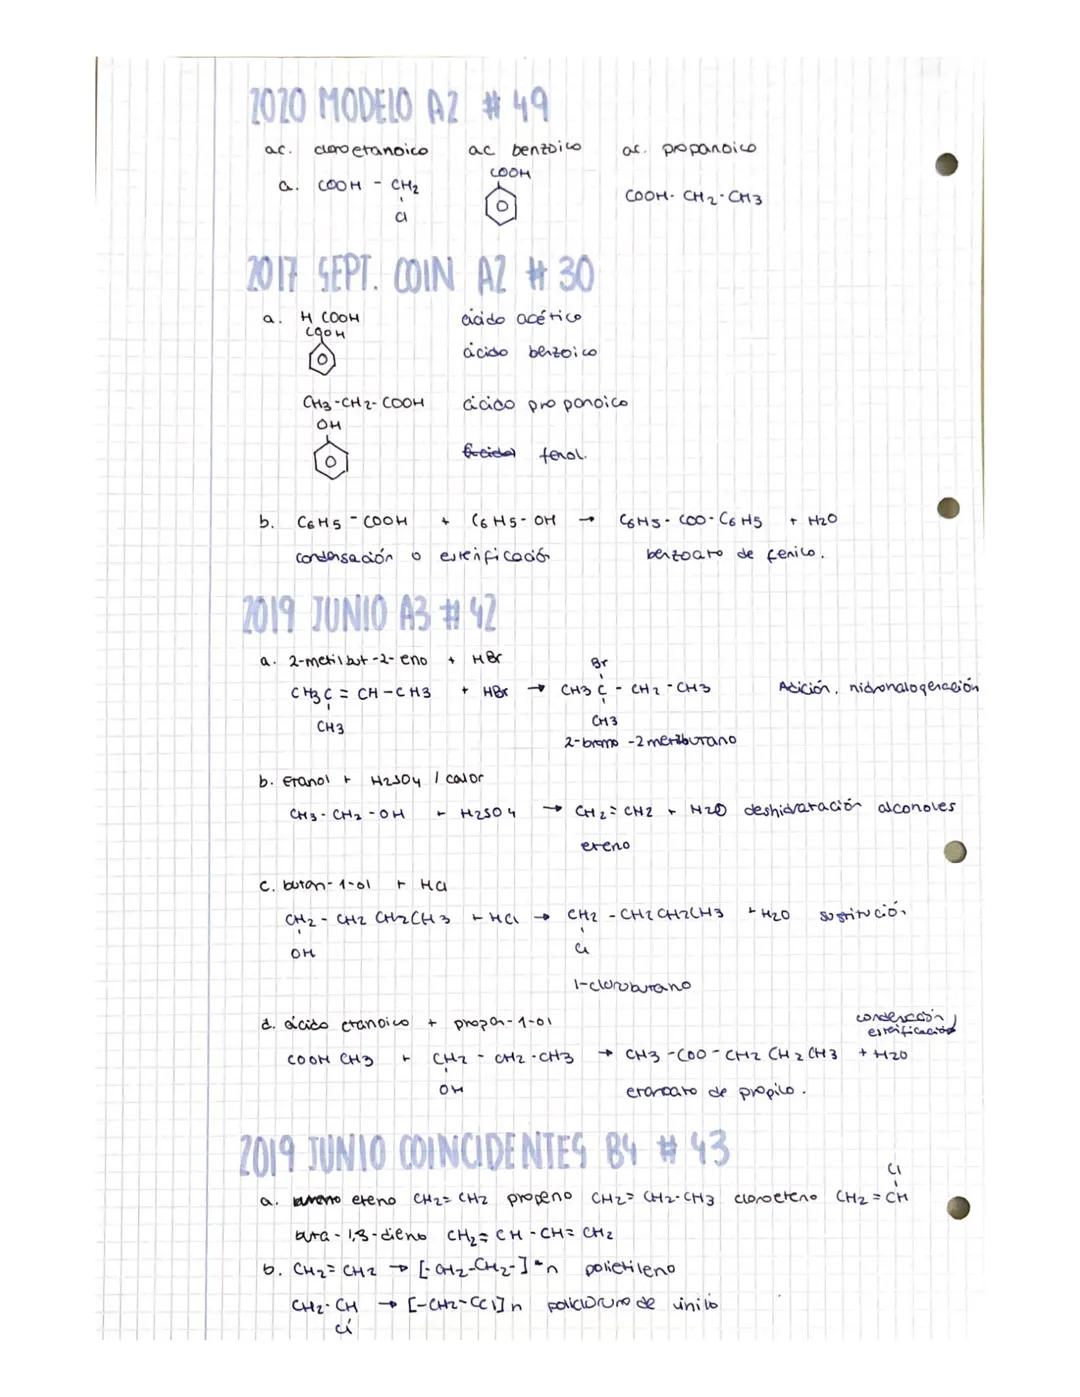 2020 MODELO A2 # 49
ac. cloroetanoico ac benzoico ac. propanoico
a. COOH - CH2 COOH COOH - CH2 - CH3
Cl
2017 SEPT. COIN A2 # 30
a. H COOH ácido acético
COOH
ácido benzoico
CH3-CH2-COOH ácido propanoico
OH
fenol.
b. C6H5 - COOH + C6H5-OH → C6H5-COO-C6H5 + H2O
condensación o esterificación benzoato de fenilo.
2019 JUNIO A3 # 42
a. 2-metilbut-2-eno + HBr Br
CH3 C = CH - CH3 + HBr → CH3 C - CH2 - CH3 Adición, hidrohalogenación
CH3 CH3
2-bromo -2 metilbutano
b. etanol + H2SO4 / calor
CH3 - CH2 - OH + H2SO4 → CH2 = CH2 + H2O deshidratación alcoholes
eteno
c. butan-1-ol + HCl
CH2 - CH2 CH2 CH3 + HCl → CH2 - CH2 CH2 CH3 + H2O sustitución
OH Cl
1-clorobutano
d. ácido etanoico + propan-1-ol condensación,
esterificación
COOH CH3 + CH2 - CH2 - CH3 → CH3 - COO - CH2 CH2 CH3 + H2O
OH etanoato de propilo.
2019 JUNIO COINCIDENTES B4 # 43
Cl
a. eteno CH2 = CH2 propeno CH2 = CH2 - CH3 cloroeteno CH2 = CH
buta - 1,3 - dieno CH2 = CH - CH = CH2
b. CH2 = CH2 → [-CH2-CH2-]n polietileno
CH2 - CH → [-CH2-CCl]n policloruro de vinilo
Cl